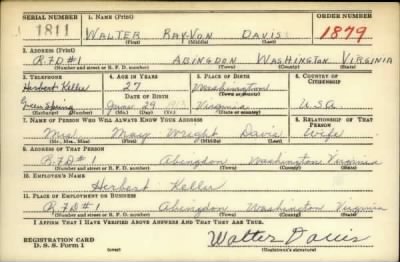 SERIAL NUMBER 1. NAME (Print) ORDER NUMBER
1811 WALTER RAY-VON DAVIS 1879
(First) (Middle) (Last)
2. ADDRESS (Print)
R.F.D #1 ABINGDON WASHINGTON VIRGINIA
(Number and street or R. F. D. number) (Town) (County) (State)
3. TELEPHONE 4. AGE IN YEARS 5. PLACE OF BIRTH 6. COUNTRY OF CITIZENSHIP
Herbert Keller 27 Washington
DATE OF BIRTH (Town or county)
Green Spring June 29 1913 Virginia U.S.A.
(Exchange) (Number) (Mo.) (Day) (Yr.) (State or country)
7. NAME OF PERSON WHO WILL ALWAYS KNOW YOUR ADDRESS 8. RELATIONSHIP OF THAT PERSON
Mrs. May Wright Davis Wife
(Mr., Mrs., Miss) (First) (Middle) (Last)
9. ADDRESS OF THAT PERSON
R.F.D #1 Abingdon Washington Virginia
(Number and street or R. F. D. number) (Town) (County) (State)
10. EMPLOYER'S NAME
Herbert Keller
11. PLACE OF EMPLOYMENT OR BUSINESS
R.F.D #1 Abingdon Washington Virginia
(Number and street or R. F. D. number) (Town) (County) (State)
I AFFIRM THAT I HAVE VERIFIED ABOVE ANSWERS AND THAT THEY ARE TRUE.
REGISTRATION CARD Walter Davis
D. S. S. Form 1 (over) (Registrant's signature)